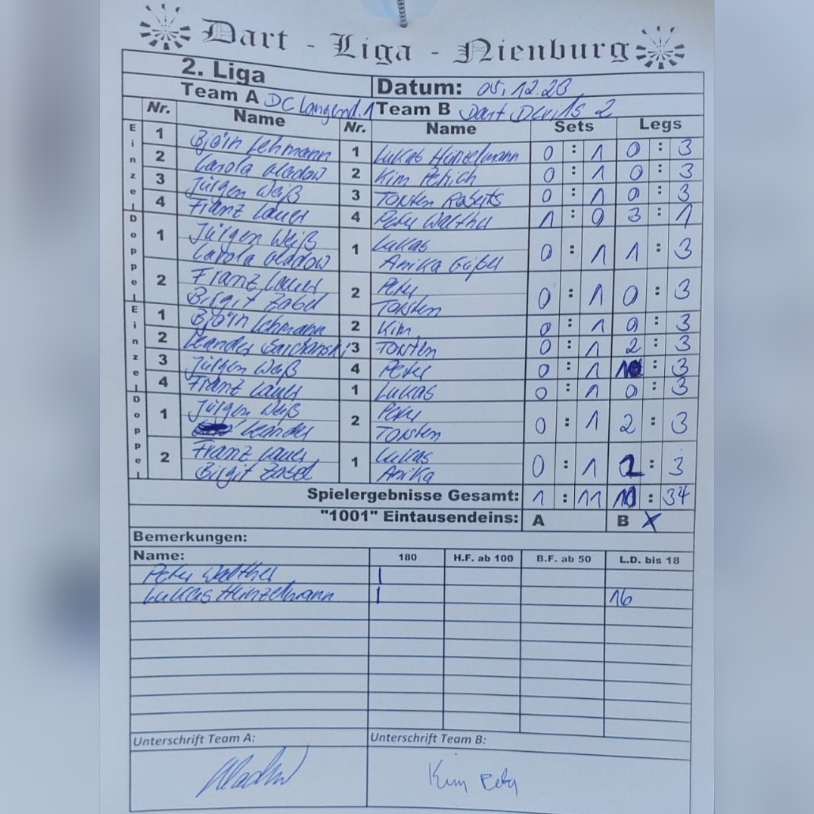 Dart - Liga - Nienburg
2. Liga
Datum: 05.12.23
Team A DC Langend. 1
Team B Dart Devils 2
Nr. Name Nr. Name Sets Legs
Einzel
1 Björn Lehmann 1 Lukas Heinzelmann 0 : 1 0 : 3
2 Carola Gladow 2 Kim 0 : 1 0 : 3
3 Jürgen Weiß 3 Torsten 0 : 1 0 : 3
4 Franz Lauer 4 Peter Walther 1 : 0 3 : 1
Doppel
1 Jürgen Weiß 1 Lukas 0 : 1 1 : 3
Carola Gladow Anika
2 Franz Lauer 2 Peter 0 : 1 0 : 3
Birgit Zabel Torsten
Einzel
1 Björn Lehmann 2 Kim 0 : 1 0 : 3
2 Leander 3 Torsten 0 : 1 2 : 3
3 Jürgen Weiß 4 Peter 0 : 1 : 3
4 Franz Lauer 1 Lukas 0 : 1 0 : 3
Doppel
1 Jürgen Weiß 2 Peter 0 : 1 2 : 3
Leander Torsten
2 Franz Lauer 1 Lukas 0 : 1 : 3
Birgit Zabel Anika
Spielergebnisse Gesamt: 1 : 11 10 : 34
"1001" Eintausendeins: A B X
Bemerkungen:
Name: 180 H.F. ab 100 B.F. ab 50 L.D. bis 18
Peter Walther I
Lukas Heinzelmann I 16
Unterschrift Team A: Unterschrift Team B:
Kim